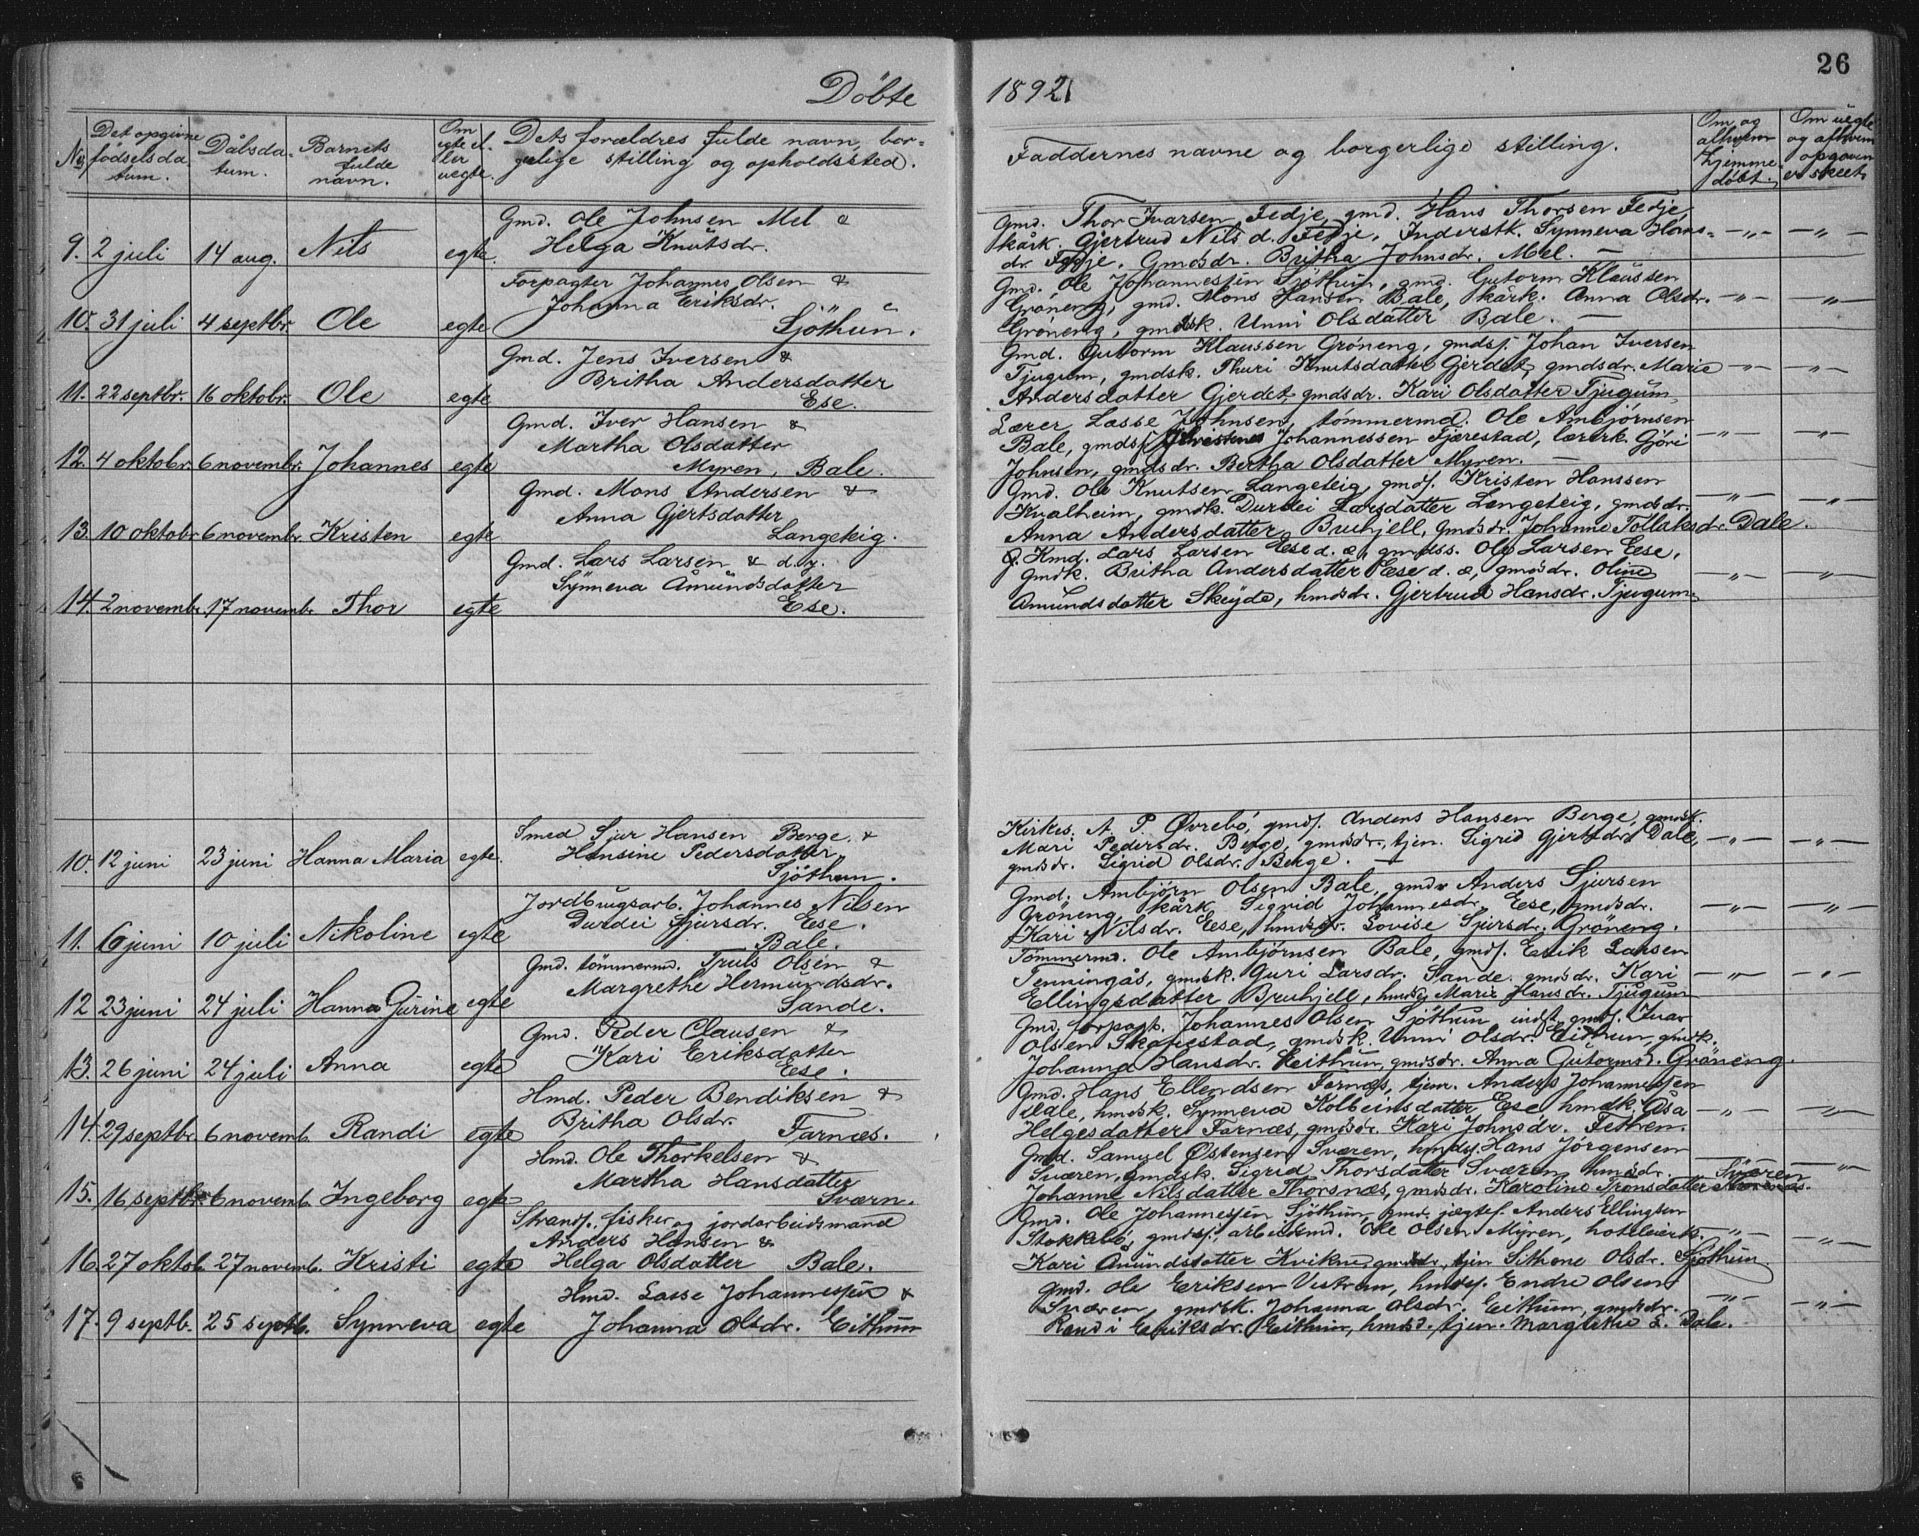 26
Döbte 1892
No
Det opgivne fødselsdatum.
Dåbsdatum.
Barnets fulde navn.
Om egte eller uegte.
Dets forældres fulde navn, borgerlige stilling og opholdssted.
Faddernes navne og borgerlige stilling.
Om og af hvem hjemmedöbt.
Om uegte og af hvem opgaven er skeet.
9. 2 juli 14 aug. Nils egte.
Gmd. Ole Johnsen Mel &
Helga Knutsdr.
Gmd. Thor Ivarsen Fedje, gmd. Hans Thorsen Fedje,
kårk. Gjertrud Nilsd. Fedje, Inderstk. Synneva Hans-
dr. Fedje. Gmdsdr. Britha Johnsdr. Mel. —
10. 31 juli 4 septbr. Ole egte
Forpagter Johannes Olsen &
Johanna Eriksdr.
Sjöthun.
Gmd. Ole Johannessen Sjöthun, gmd. Gutorm Klaussen
Gröneng, gmd. Mons Hansen Bale, kårk. Anna Olsdr.
Gröneng, gmdsk. Unni Olsdatter Bale. —
11. 22 septbr. 16 oktobr. Ole egte
Gmd. Jens Iversen &
Britha Andersdatter
Ese.
Gmd. Gutorm Klaussen Gröneng, gmdss. Johan Iversen
Tjugum, gmdsk. Thuri Knutsdatter Gjerdet gmdsdr. Marie
Andersdatter Gjerdet gmdsdr. Kari Olsdatter Tjugum.
12. 4 oktobr. 6 novembr. Johannes egte
Gmd. Iver Hansen &
Martha Olsdatter
Myren, Bale.
Lærer Lasse Johnsen, tömmermd. Ole Ambjörnsen
Bale, gmdss. Johannessen Tjærestad, lærerk. Gjöri
Johnsen, gmdsdr. Bertha Olsdatter Myren. —
13. 10 oktobr. 6 novembr. Kristen egte
Gmd. Mons Andersen &
Anna Gjertsdatter
Langeteig.
Gmd. Ole Knutsen Langeteig, gmds. Kristen Hanssen
Kvalheim, gmdk. Durdei Larsdatter Langeteig, gmdsdr.
Anna Andersdatter Bruhjell, Gmdsdr. Johanne Tollaksdr. Dale.
14. 2 novembr. 17 novembr. Thor egte
Gmd. Lars Larsen & d.y.
Synneva Åmundsdatter
Ese.
Lars Larsen Ese d. æ, gmdss. Ole Larsen Ese,
Gmdk. Britha Andersdatter Ese d. æ, gmdsdr. Oline
Amundsdatter Skejde, hmdsdr. Gjertrud Hansdr. Tjugum.
10. 12 juni 23 juni Hanna Maria egte.
Smed Sjur Hansen Berge. &
Hansine Pedersdatter
Sjöthun.
Kirkes. A. P. Øvrebö, gmds. Anders Hansen Berge, gmdsk.
Mari Pedersdr. Berge, gmdsdr. tjen. Sigrid Gjertsdr. Dale,
gmdsdr. Sigrid Olsdr. Berge. —
11. 6 juni 10 juli Nikoline egte
Jordbrugsarb. Johannes Nilsen
Durdei Sjursdr. Ese.
Bale.
Gmd. Ambjörn Olsen Bale, gmd. Anders Sjursen
Gröneng, kårk. Sigrid Johannesdr. Ese, gmdsdr.
Kari Nilsdr. Ese, hmdsdr. Lovise Sjursdr. Gröneng.
12 23 juni 24 juli Hanna Gurine egte
Gmd. tömmermd. Truls Olsen &
Margrethe Hermundsdr.
Sande.
Tömmermd. Ole Ambjörnsen Bale, gmds. Erik Larsen
Tenningås, gmdsk. Guri Larsdr. Sande. gmdsdr. Kari
Ellingsdatter Bruhjell, Marie Hansdr. Tjugum
13. 26 juni 24 juli Anna egte
Gmd. Peder Clausen &
Kari Eriksdatter
Ese.
Gmd. forpagt. Johannes Olsen Sjöthun, gmds. Ivar
Olsen Skafjestad, gmdsk. Unni Olsdr. Eithun, gmdk.
Johanna Hansdr. Eithun, gmdsdr. Anna Gutormsd. Gröneng.
14. 29 septbr. 6 novemb. Randi egte
Hmd. Peder Bendiksen &
Britha Olsdr.
Farnæs.
Gmd. Hans Ellendsen Farnæs, tjen. Anders Johannessen
Dale, hmdsk. Synneva Kolbeinsdatter Ese, hmdk. Åsa
Helgesdatter Farnæs, gmdsdr. Kari Johnsdr. Fethen.
15. 16 septbr. 6 novemb. Ingeborg egte
Hmd. Ole Thorkelsen &
Martha Hansdatter
Sværn.
Gmd. Samuel Østensen Sværen, hmds. Hans Jörgensen
Sværen, Gmdsk. Sigrid Thorsdatter Sværen, hmdsdr.
Johanne Nilsdatter Thorsnæs, gmdsdr. Karoline Tronsdatter Sværen
16. 27 oktob. 27 novemb. Kristi egte
Strands. fisker og jordarbeidsmand
Anders Hansen &
Helga Olsdatter Bale.
Gmd. Ole Johannessen Sjöthun, gmd. jægtes. Anders Ellingsen
Stokkebö, gmds. arbeidsmd. Ole Olsen Myren, hoteleierk.
Kari Amundsdatter Kvikne, tjen Sithone Olsdr. Sjöthun.
17. 9 septb. 25 septb. Synneva egte
Hmd. Lasse Johannessen &
Johanna Olsdr. Eithun
Gmd. Ole Eriksen Vestrem, hmds. Endre Olsen
Sværen, gmdsk. Johanna Olsdr. Eithun, gmdsdr.
Randi Eriksdr. Eithun, hmdsd. tjen. Margrethe E. Dale.